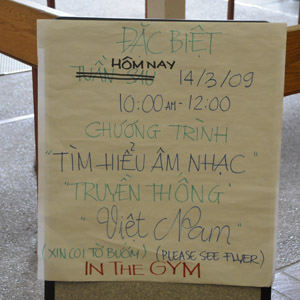 ĐẶC BIỆT
HÔM NAY
TUẦN SAU 14/3/09
10:00 AM - 12:00
CHƯƠNG TRÌNH
"TÌM HIỂU ÂM NHẠC"
"TRUYỀN THỐNG"
"Việt Nam"
(XIN COI TỜ BƯỚM) (PLEASE SEE FLYER)
IN THE GYM